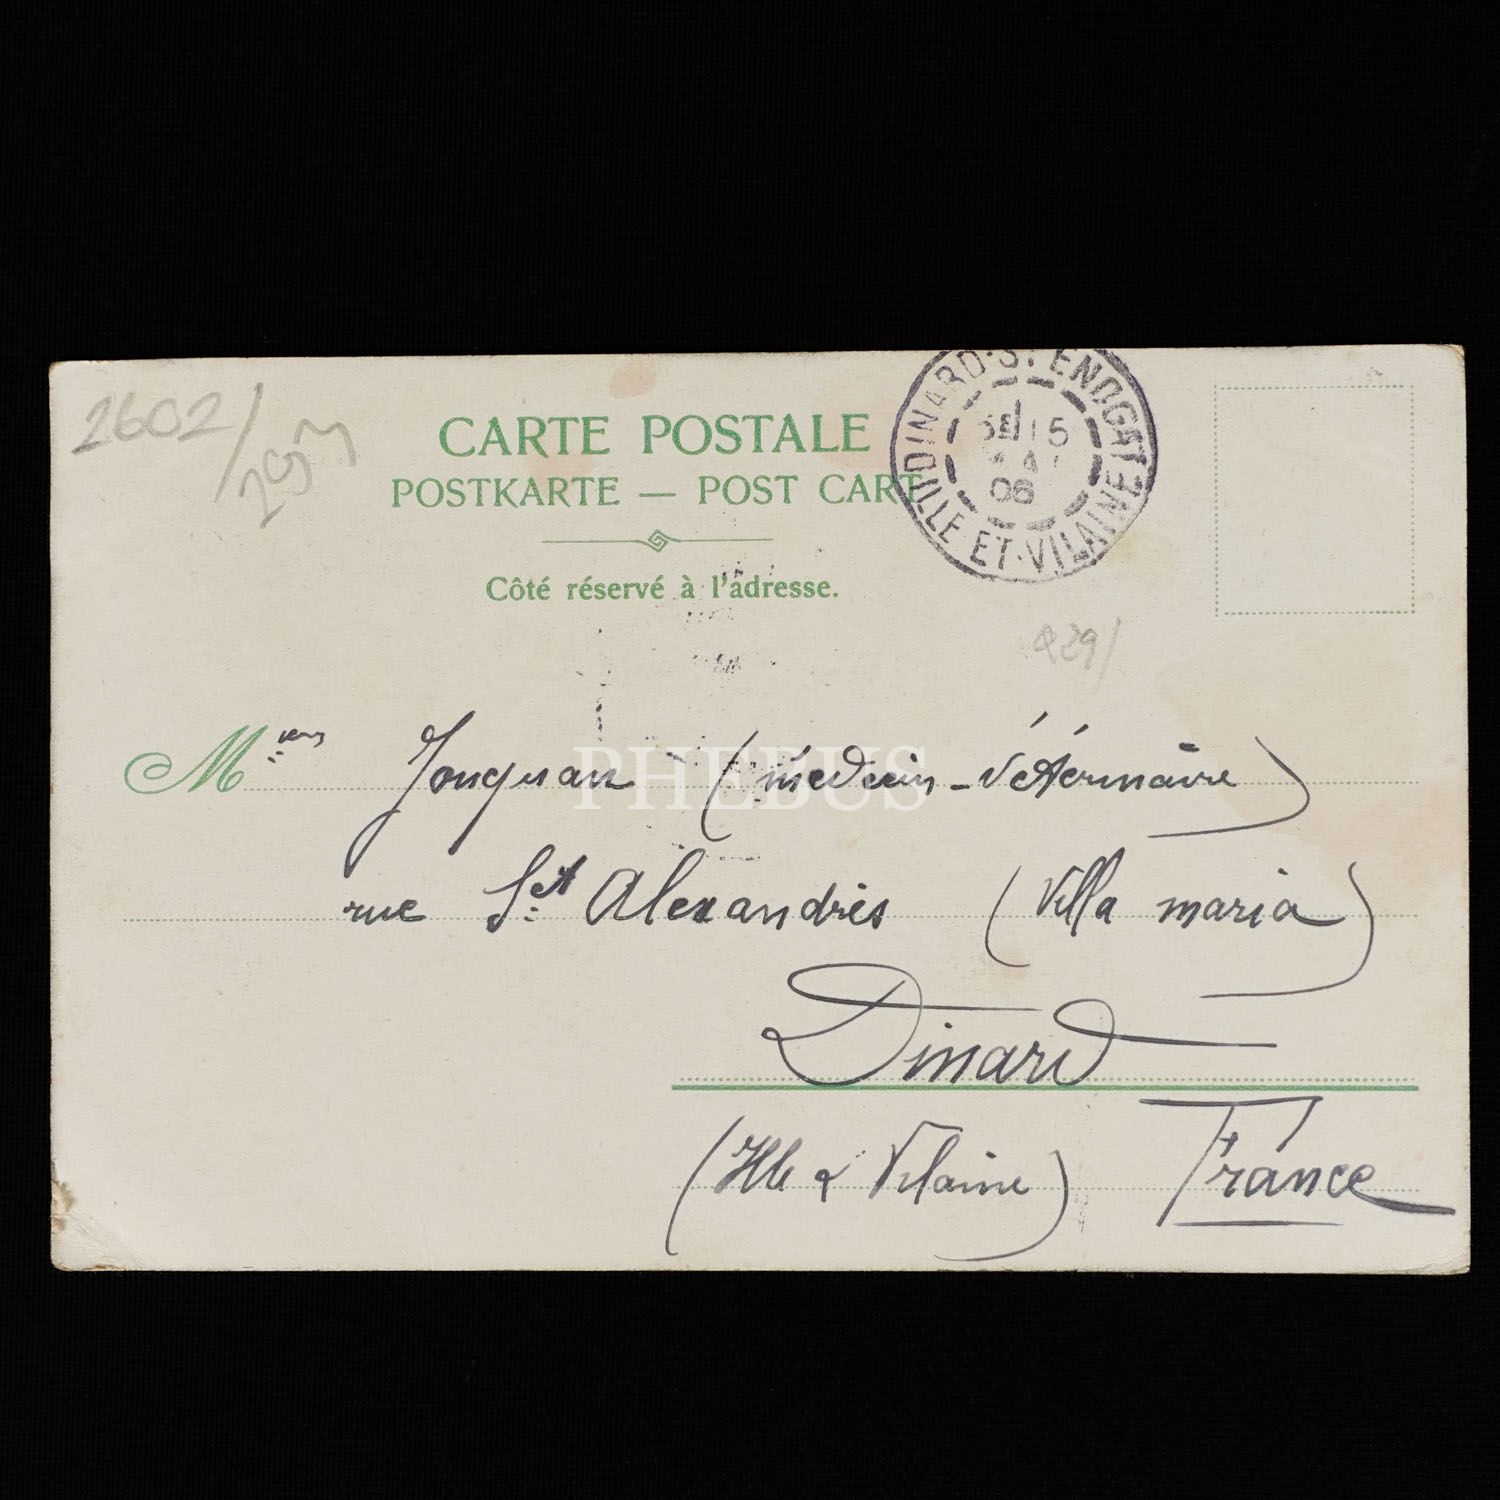 2602/
CARTE POSTALE
POSTKARTE — POST CARD
Côté réservé à l'adresse.
DINARD-ST ENOGATE
15
06
ILLE-ET-VILAINE
429/
PHEBUS
Mr Jouquan (médecin-Vétérinaire)
rue St Alexandrès (Villa maria)
Dinard
(Ille & Vilaine) France